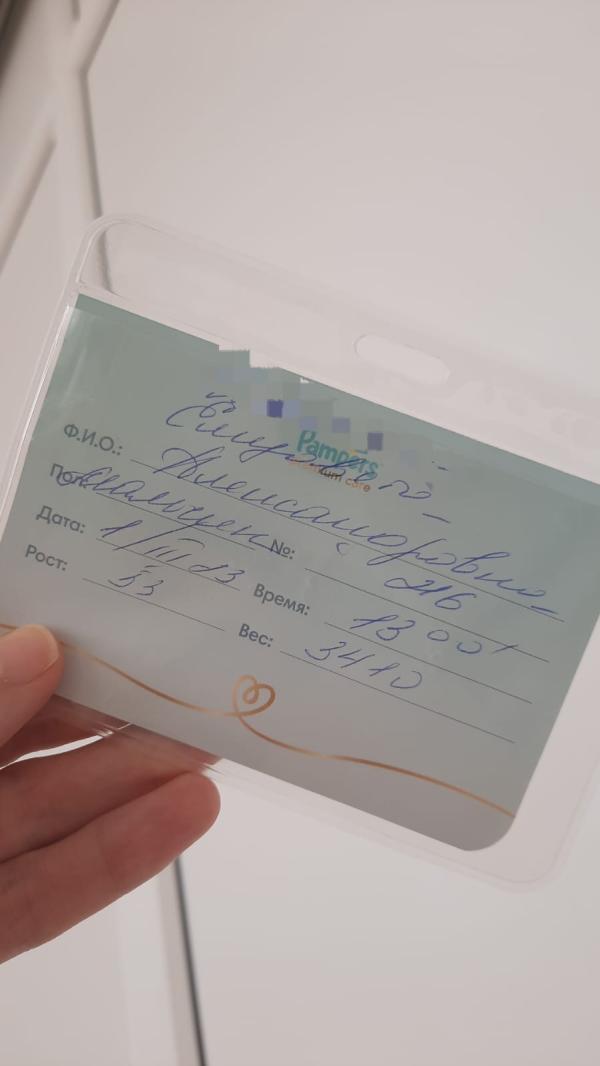 Pampers
premium care
Ф.И.О.: Александровна
Пол: Мальчик №: 216
Дата: 1/III 23 Время: 13 00'
Рост: 53 Вес: 3410